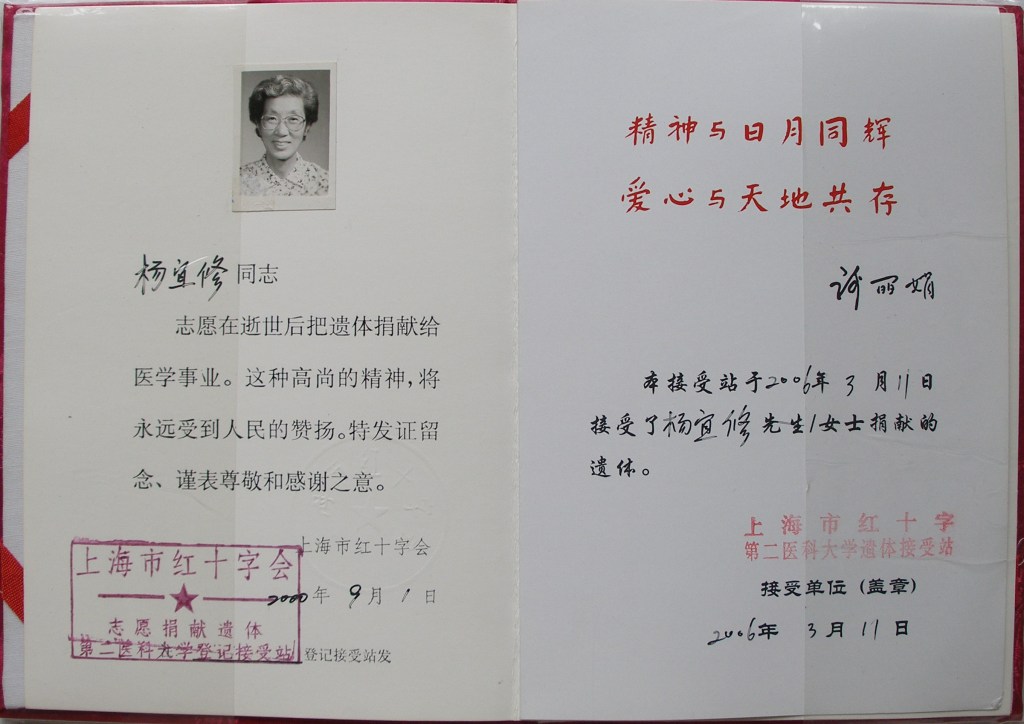 杨宜修同志
志愿在逝世后把遗体捐献给
医学事业。这种高尚的精神，将
永远受到人民的赞扬。特发证留
念、谨表尊敬和感谢之意。
上海市红十字会
2000年 9月 1日
登记接受站发
上海市红十字会
志愿捐献遗体
第二医科大学登记接受站
精神与日月同辉
爱心与天地共存
谢丽娟
本接受站于2006年 3 月 11 日
接受了杨宜修先生/女士捐献的
遗体。
上海市红十字
第二医科大学遗体接受站
接受单位（盖章）
2006年 3 月 11 日